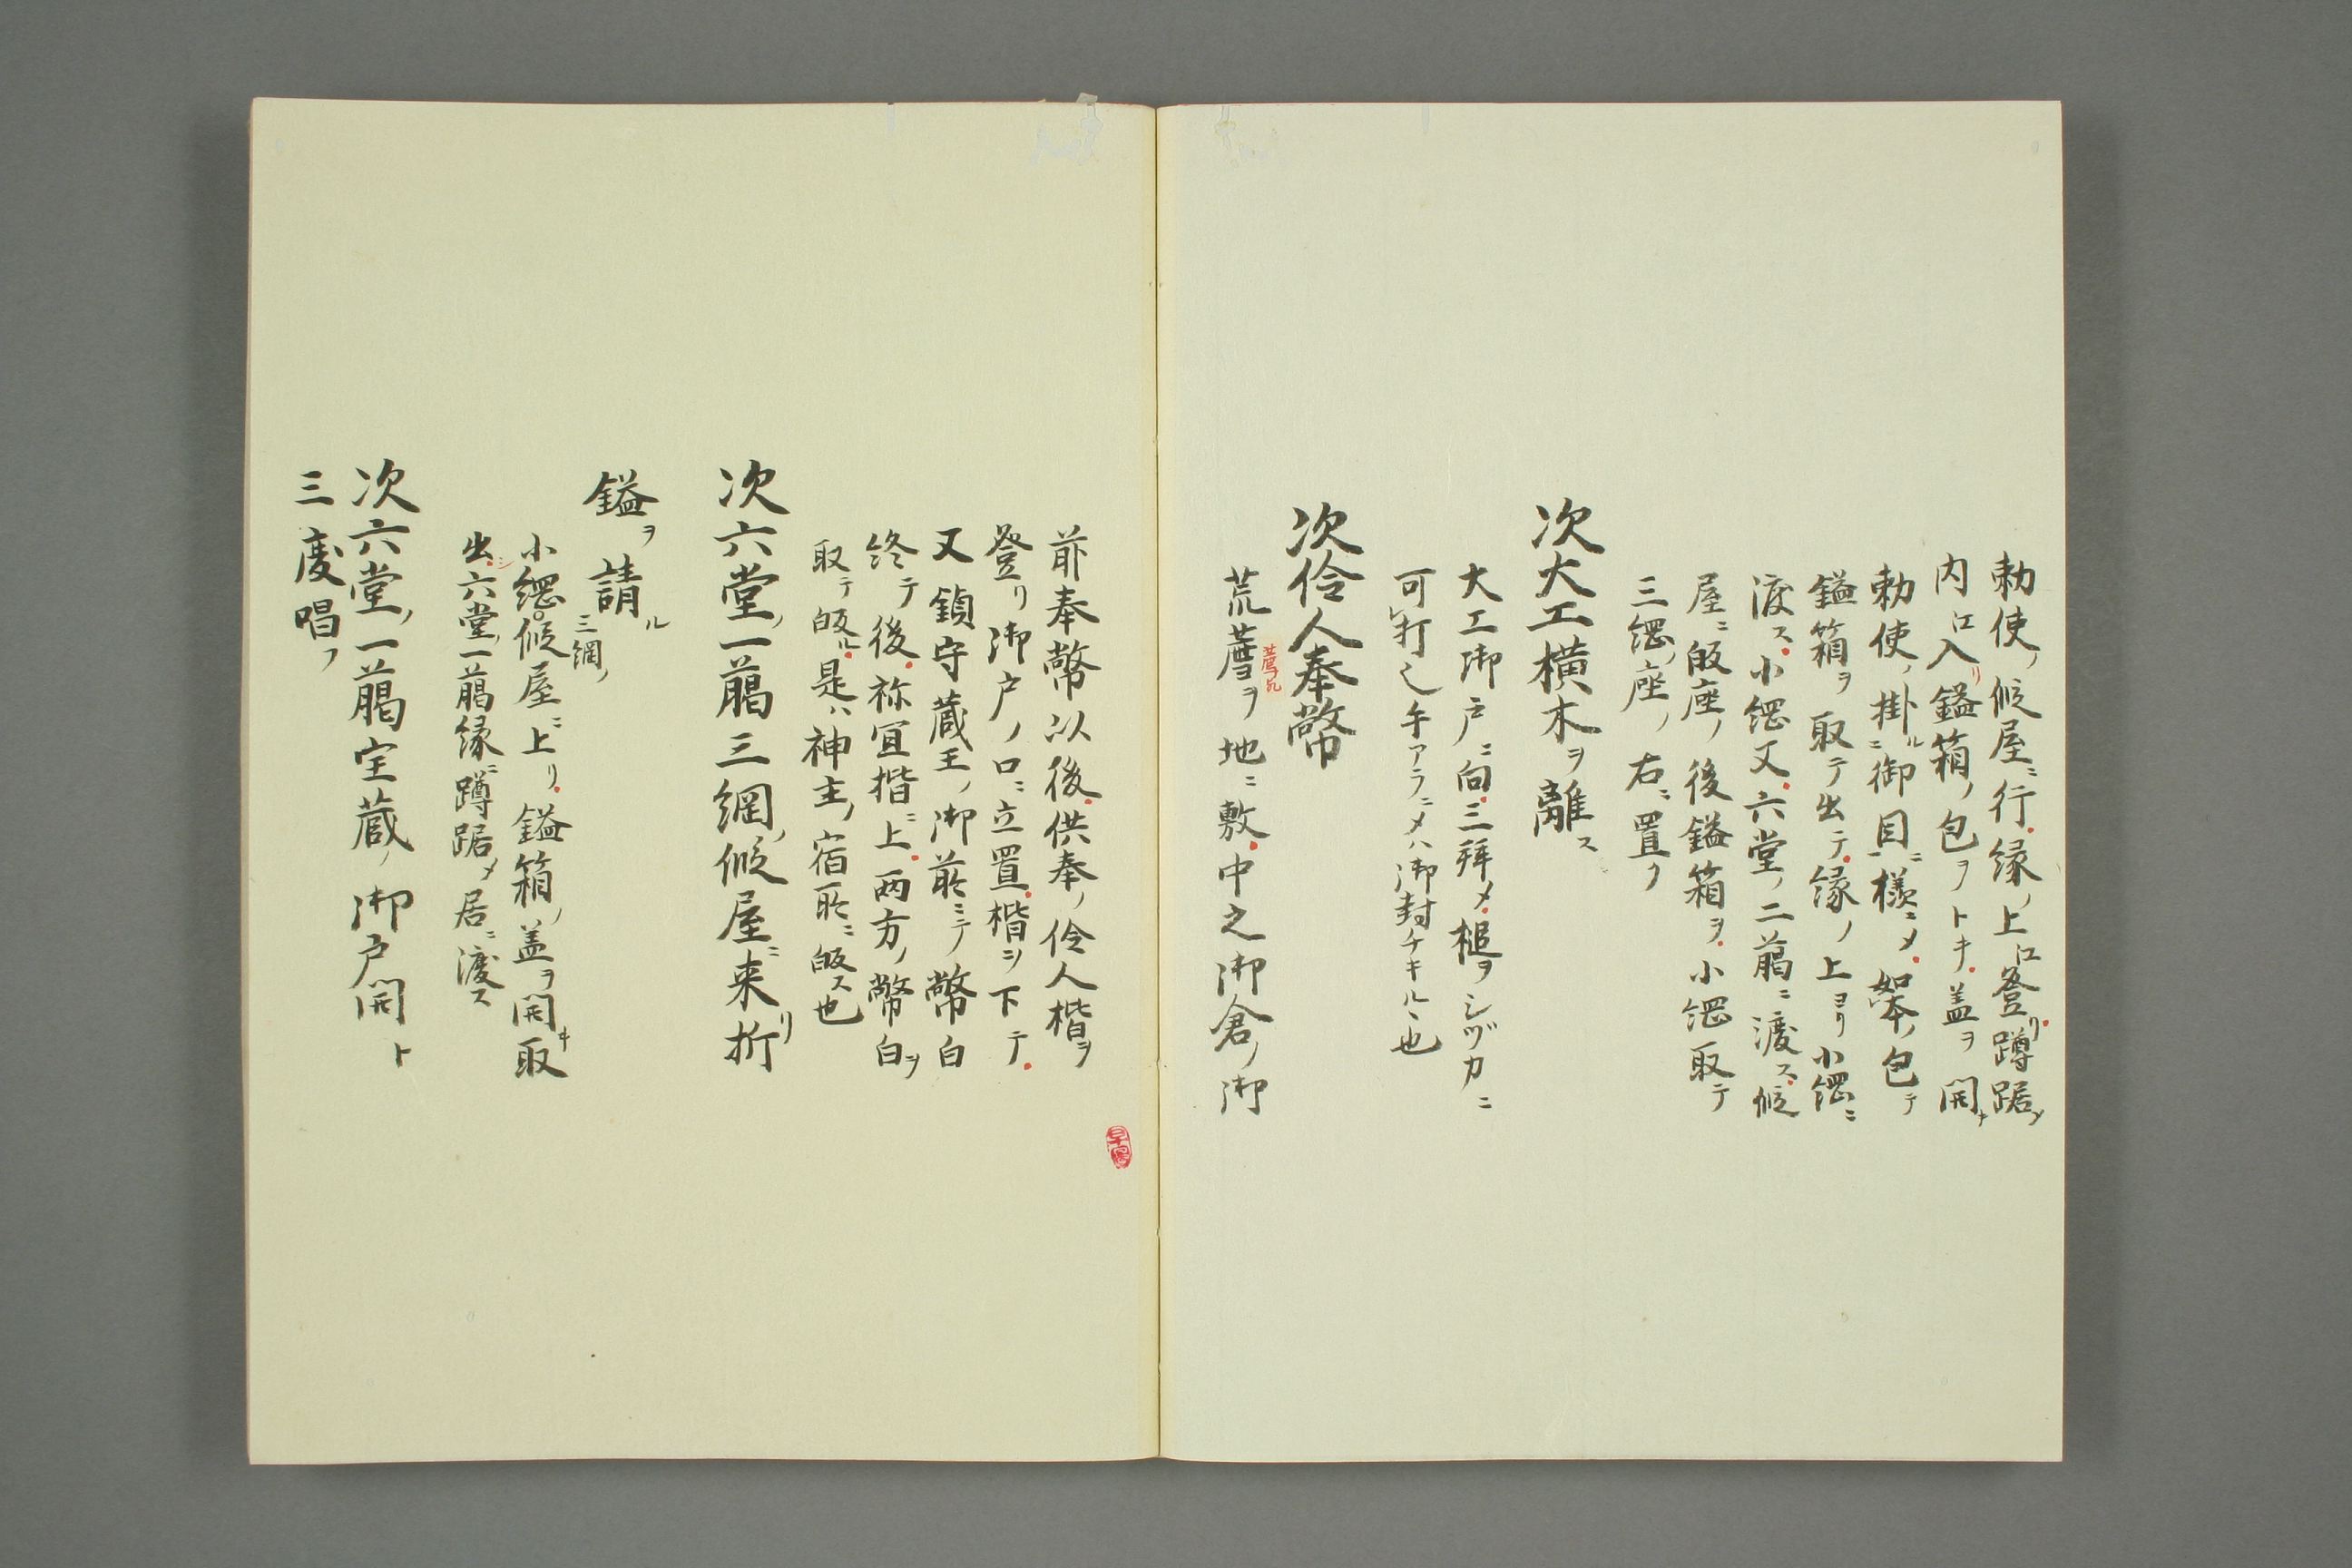 勅使ノ仮屋ニ行縁ノ上エ登リ蹲踞メ
内エ入リ鎰箱ノ包ヲトキ盖ヲ開キ
勅使ノ掛ル御目ニ様ニメ如本ノ包テ
鎰箱ヲ取テ出テ縁ノ上ヨリ小綱ニ
渡ス小綱又六堂ノ二﨟ニ渡ス仮
屋ニ皈座ノ後鎰箱ヲ小綱取テ
三綱ノ座ノ右ニ置ク
次大工横木ヲ離ス
大工御戸ニ向三拜メ槌ヲシヅカニ
可打之手アラニメハ御封チキルヽ也
次伶人奉幣
荒薦ヲ地ニ敷中之御倉ノ御
前奉幣以後供奉ノ伶人楷ヲ
登リ御戸ノ口ニ立置楷ヲ下テ
又鎮守蔵王ノ御前ニテ幣白
終テ後祢宜揩ニ上両方ノ幣白ヲ
取テ皈ル是ハ神主ノ宿所ニ皈ス也
次六堂ノ一﨟三綱ノ仮屋ニ来リ折
鎰ヲ請ル
三綱ノ
小綱仮屋ニ上リ鎰箱ノ盖ヲ開キ取
出シ六堂ノ一﨟縁ニ蹲踞メ居ニ渡ス
次六堂ノ一﨟宝蔵ノ御戸開ト
三度唱フ